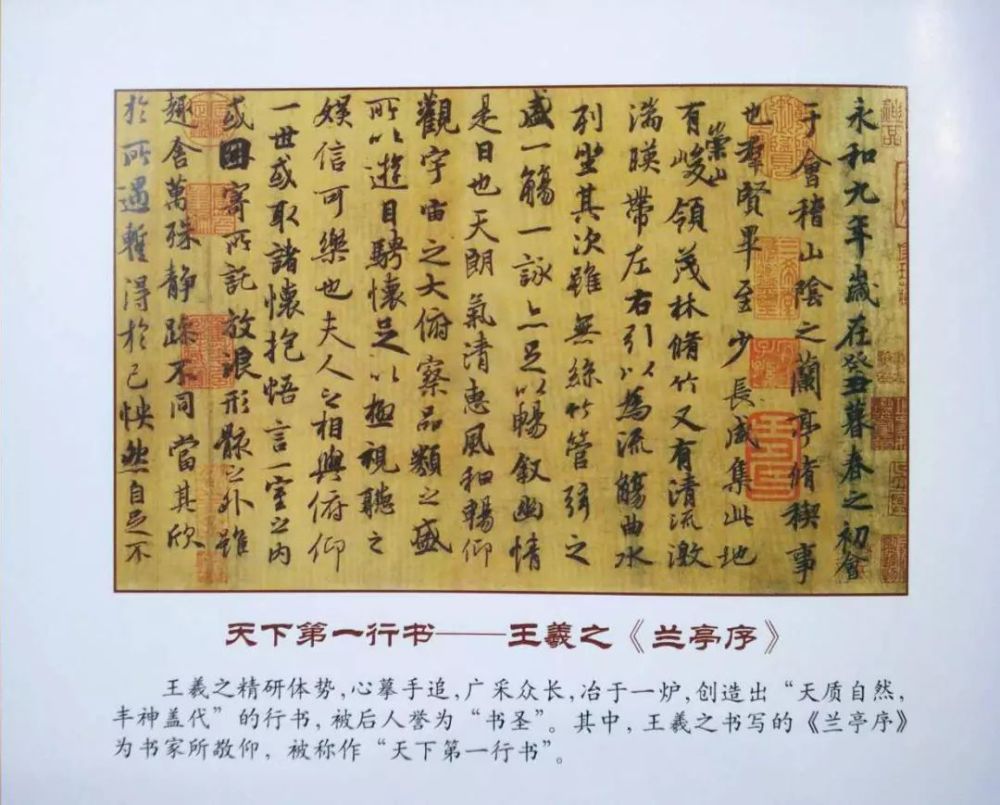 永和九年歲在癸丑暮春之初會
于會稽山陰之蘭亭脩稧事
也羣賢畢至少長咸集此地
有崇山峻領茂林脩竹又有清流激
湍暎帶左右引以為流觴曲水
列坐其次雖無絲竹管弦之
盛一觴一詠亦足以暢叙幽情
是日也天朗氣清惠風和暢仰
觀宇宙之大俯察品類之盛
所以遊目騁懷足以極視聽之
娛信可樂也夫人之相與俯仰
一世或取諸懷抱悟言一室之內
或因寄所託放浪形骸之外雖
趣舍萬殊静躁不同當其欣
於所遇蹔得於己怏然自足不
天下第一行书——王羲之《兰亭序》
王羲之精研体势,心摹手追,广采众长,冶于一炉,创造出“天质自然,
丰神盖代”的行书,被后人誉为“书圣”。其中,王羲之书写的《兰亭序》
为书家所敬仰,被称作“天下第一行书”。